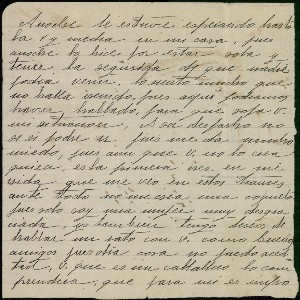 Anoche le estuve esperando hasta
la 1 y media en mi casa pues
anoche lo hice por estar sola y
tener la seguridad de que nadie
podia venir. lo siento mucho que
no halla venido, pues aqui podiamos
haver hablado, para que sepa V.
mi situacion. A su despacho no
se si podre ir, pues me da mucho
miedo, pues aun que V. no lo crea
es la primera vez en mi
vida que me veo en estos trances
ante todo no me crea una coqueta
pues solo soy una mujer muy desgra
ciada, yo tambien tengo deseos de
hablar un rato con V. como buenos
amigos pues otra cosa no puedo acep
tar, V. que es un caballero lo com
prendera, que para mi es